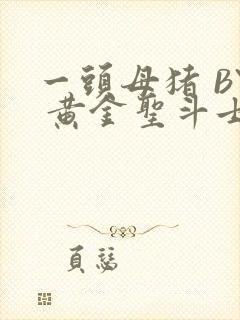 一頭母猪 BY
黄金聖斗士
頁慧